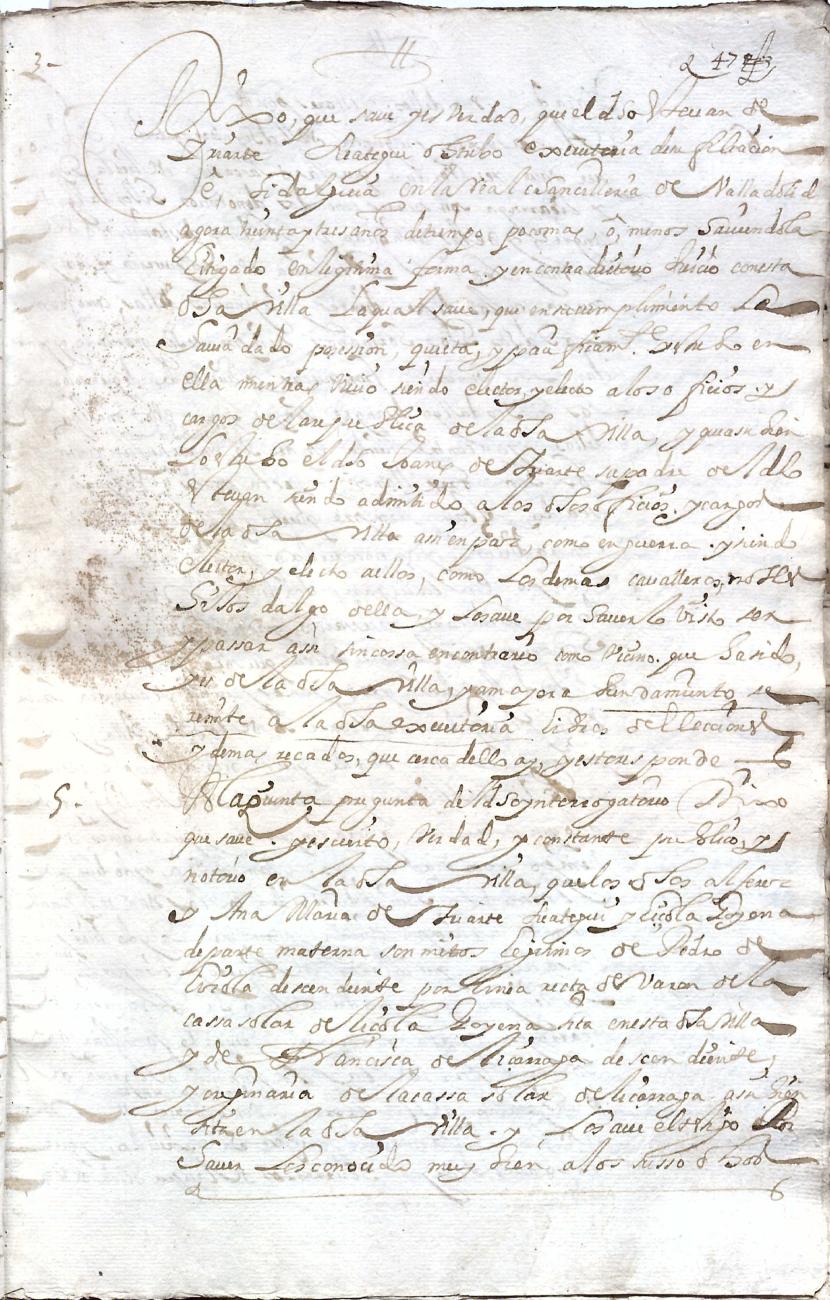 Dixo, que save y es verdad, que el dho Estevan de
Yriarte Reategui obtubo executoria de su filiacion
e Hidalguia en la Real Chancilleria de Valladolid
agora treinta y tres años de tiempo poco mas, ô, menos haviendola
litigado en legitima forma y en contradictorio Juicio con esta
dha Villa la qual save, que en su cumplimiento le
havia dado possession, quieta, y pacificamte. y estubo en
ella mientras vivio siendo elector, y electo a los oficios y
cargos de la republica de la dha Villa, y que asi bien
lo estubo el dho Joanes de Yriarte su padre del dho
Estevan siendo admitido a los dhos oficios y cargos
de la dha Villa asi en paz, como en guerra y siendo
elector, y electo a ellos, como los demas cavalleros, nobles
hijos dalgo de ella, y lo save por haverlo visto ser
y passar assi sin cossa en contrario como vecino que ha sido,
y es de la dha Villa, y a mayor abundamiento se
remite a la dha executoria libros de Elecciones
y demas recados, que cerca dello ay, y esto responde
5. A la quinta pregunta del dho ynterrogatorio Dixo
que save y es cierto, verdad, y constante publico, y
notorio en la dha Villa, que los dhos alferez
y Ana Maria de Yriarte Reategui y Loyola Goyena
de parte materna son nietos legitimos de Pedro de
Loyola descendiente por linea recta de varon de la
cassa solar de Loyola Goyena sita en esta dha Villa
y de Francisca de Licarraga descendiente,
y originaria de la cassa solar de Licarraga asi bien
sita en la dha Villa y lo save el testigo por
haver los conocido muy bien a los susso dhos